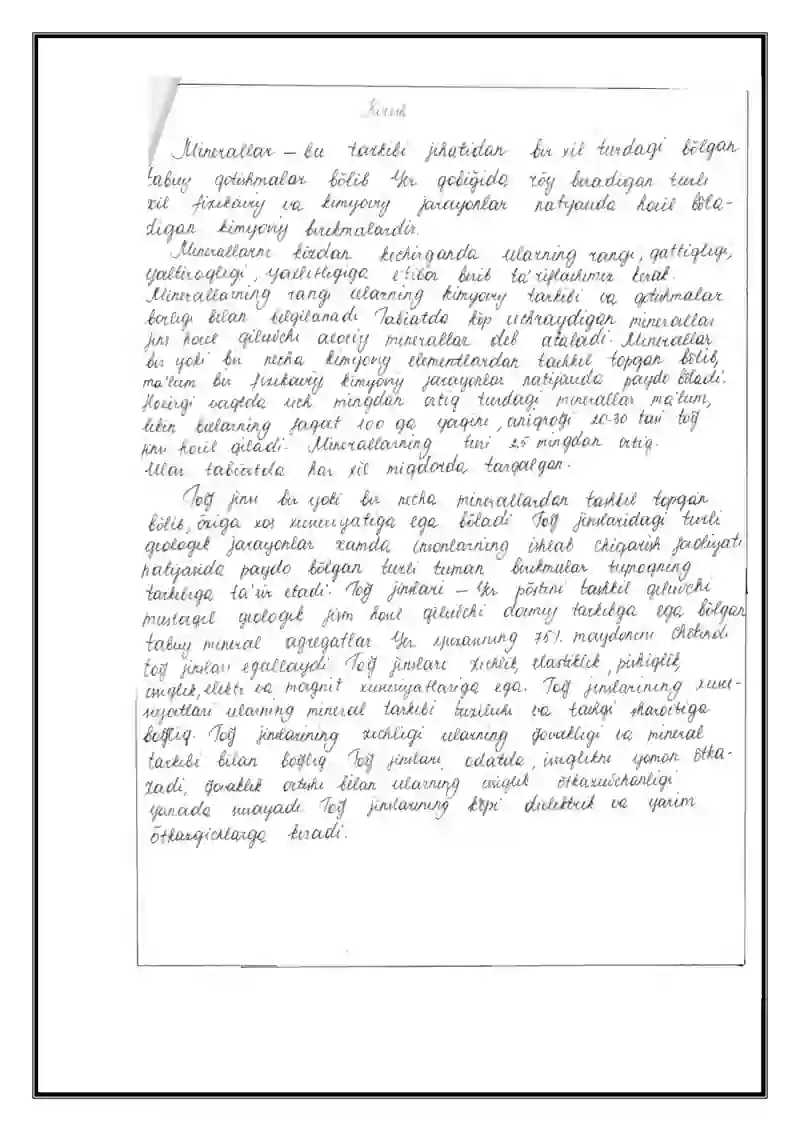 Kirish
Minerallar – bu tarkibi jihatidan bir xil turdagi bõlgan
tabiiy qotishmalar bõlib Yer qobiğida rõy beradigan turli
xil fizikaviy va kimyoviy jarayonlar natijasida hosil bõla-
digan kimyoviy birikmalardir.
Minerallarni kõzdan kechirganda ularning rangi, qattiqligi,
yaltiroqligi, yaxlitligiga e'tibor berib ta'riflashimiz kerak.
Minerallarning rangi ularning kimyoviy tarkibi va qotishmalar
borligi bilan belgilanadi Tabiatda kõp uchraydigan minerallar
jins hosil qiluvchi asosiy minerallar deb ataladi. Minerallar
bir yoki bir necha kimyoviy elementlardan tashkil topgan bõlib,
ma'lum bir fizikaviy kimyoviy jarayonlar natijasida paydo bõladi.
Hozirgi vaqtda uch mingdan ortiq turdagi minerallar ma'lum,
lekin bularning faqat 100 ga yaqini, aniqroği 20-30 tasi toğ
jinsi hosil qiladi. Minerallarning turi 2.5 mingdan ortiq.
Ular tabiatda har xil miqdorda tarqalgan.
Toğ jinsi bir yoki bir necha minerallardan tashkil topgan
bõlib, õziga xos xususiyatiga ega bõladi Toğ jinslaridagi turli
geologik jarayonlar xamda insonlarning ishlab chiqarish faoliyati
natijasida paydo bõlgan turli tuman birikmalar tuproqning
tarkibiga ta'sir etadi. Toğ jinslari – Yer põstini tashkil qiluvchi
mustaqil geologik jism hosil qiluvchi doimiy tarkibga ega bõlgan
tabiiy mineral agregatlar Yer yuzasining 75% maydonini chõkindi
toğ jinslari egallaydi Toğ jinslari zichlik, elastiklik, pishiqlik,
issiqlik, elektr va magnit xususiyatlariga ega. Toğ jinslarining xusu-
siyatlari ularning mineral tarkibi tuzilishi va tashqi sharoitiga
boğliq. Toğ jinslarining zichligi ularning ğovakligi va mineral
tarkibi bilan boğliq Toğ jinslari odatda, issiqlikni yomon õtka-
zadi, ğovaklik ortishi bilan ularning issiqlik õtkazuvchanligi
yanada susayadi Toğ jinslarining kõpi dielektrik va yarim
õtkazgichlarga kiradi.